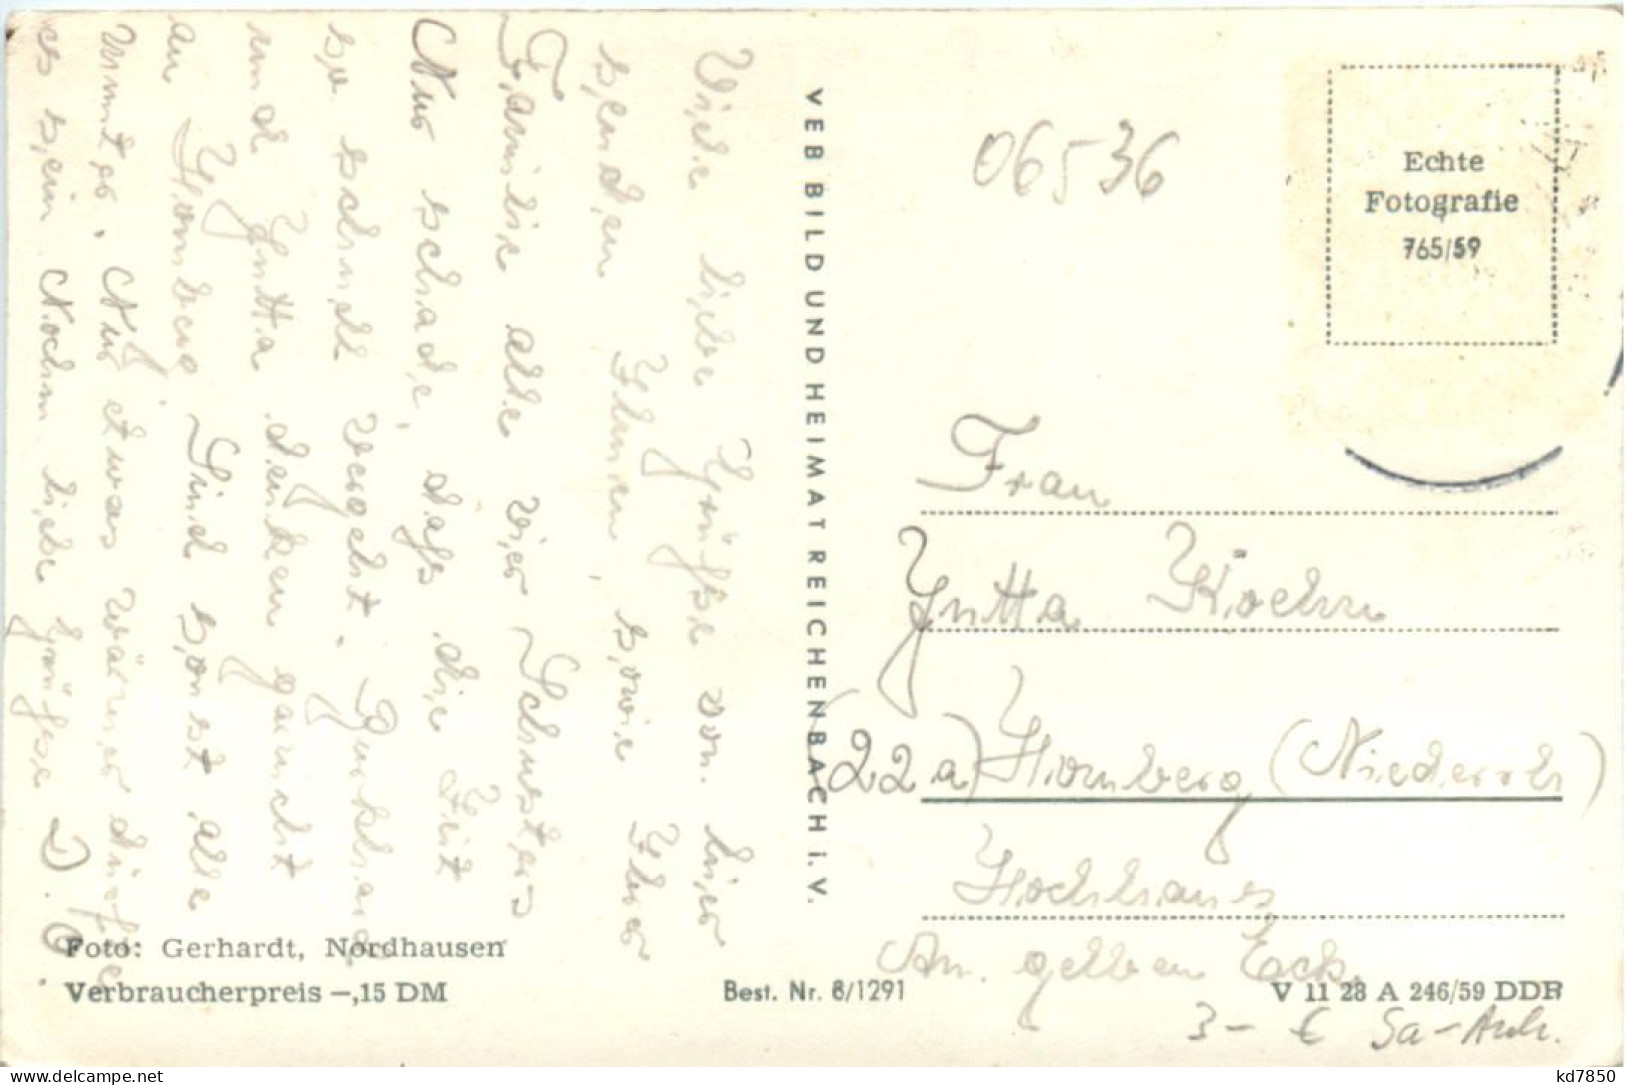 Viele liebe Grüße von hier
senden Ihnen, sowie Ihrer
Familie alle vier Schusters
Nur schade, daß die Zeit
so schnell vergeht.
und Jutta denken
an Homberg Sind sonst alle
munter. Nur etwas wärmer dürfte
es sein Nochm. liebe Grüße D. O.
VEB BILD UND HEIMAT REICHENBACH i. V.
06536
Echte
Fotografie
765/59
Frau
Jutta Köchn
(22a) Homberg (Niederrh)
Hochhaus
Am gelben Eck.
Foto: Gerhardt, Nordhausen
Verbraucherpreis —,15 DM
Best. Nr. 8/1291
V 11 28 A 246/59 DDR
3 - € Sa-Anh.
kd7850